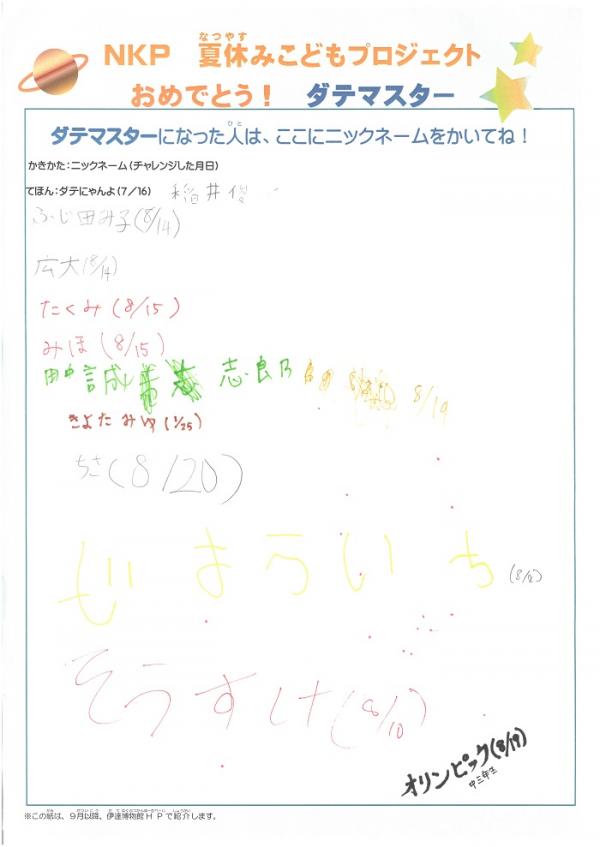 NKP 夏休みこどもプロジェクト
なつやす
おめでとう！ ダテマスター
ダテマスターになった人は、ここにニックネームをかいてね！
ひと
かきかた：ニックネーム（チャレンジした月日）
てほん：ダテにゃんよ（7／16） 稲井俊一
ふじ田み子(8/14)
広大(8/14)
たくみ(8/15)
みほ(8/15)
田中誠 志良乃 8/19
きよたみゆ(1/25)
ちさ(8/20)
そうすけ(8/10)
オリンピック(8/19)
中三年生
※この紙は、９月以降、伊達博物館ＨＰで紹介します。